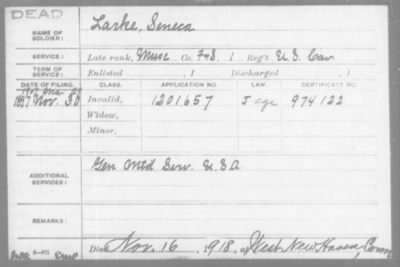 DEAD
NAME OF SOLDIER: Larke, Seneca
SERVICE: Late rank, Musc Co. F&S. 1 Reg't U.S. Cav.
TERM OF SERVICE: Enlisted , 1 Discharged , 1
DATE OF FILING. CLASS. APPLICATION NO. LAW. CERTIFICATE NO.
1897 Nov. 30 Invalid, 1201657 J age 974122
Widow,
Minor,
ADDITIONAL SERVICES: Gen Mtd Serv. U.S.A.
REMARKS:
Died Nov. 16, 1918, at West New Haven, Conn